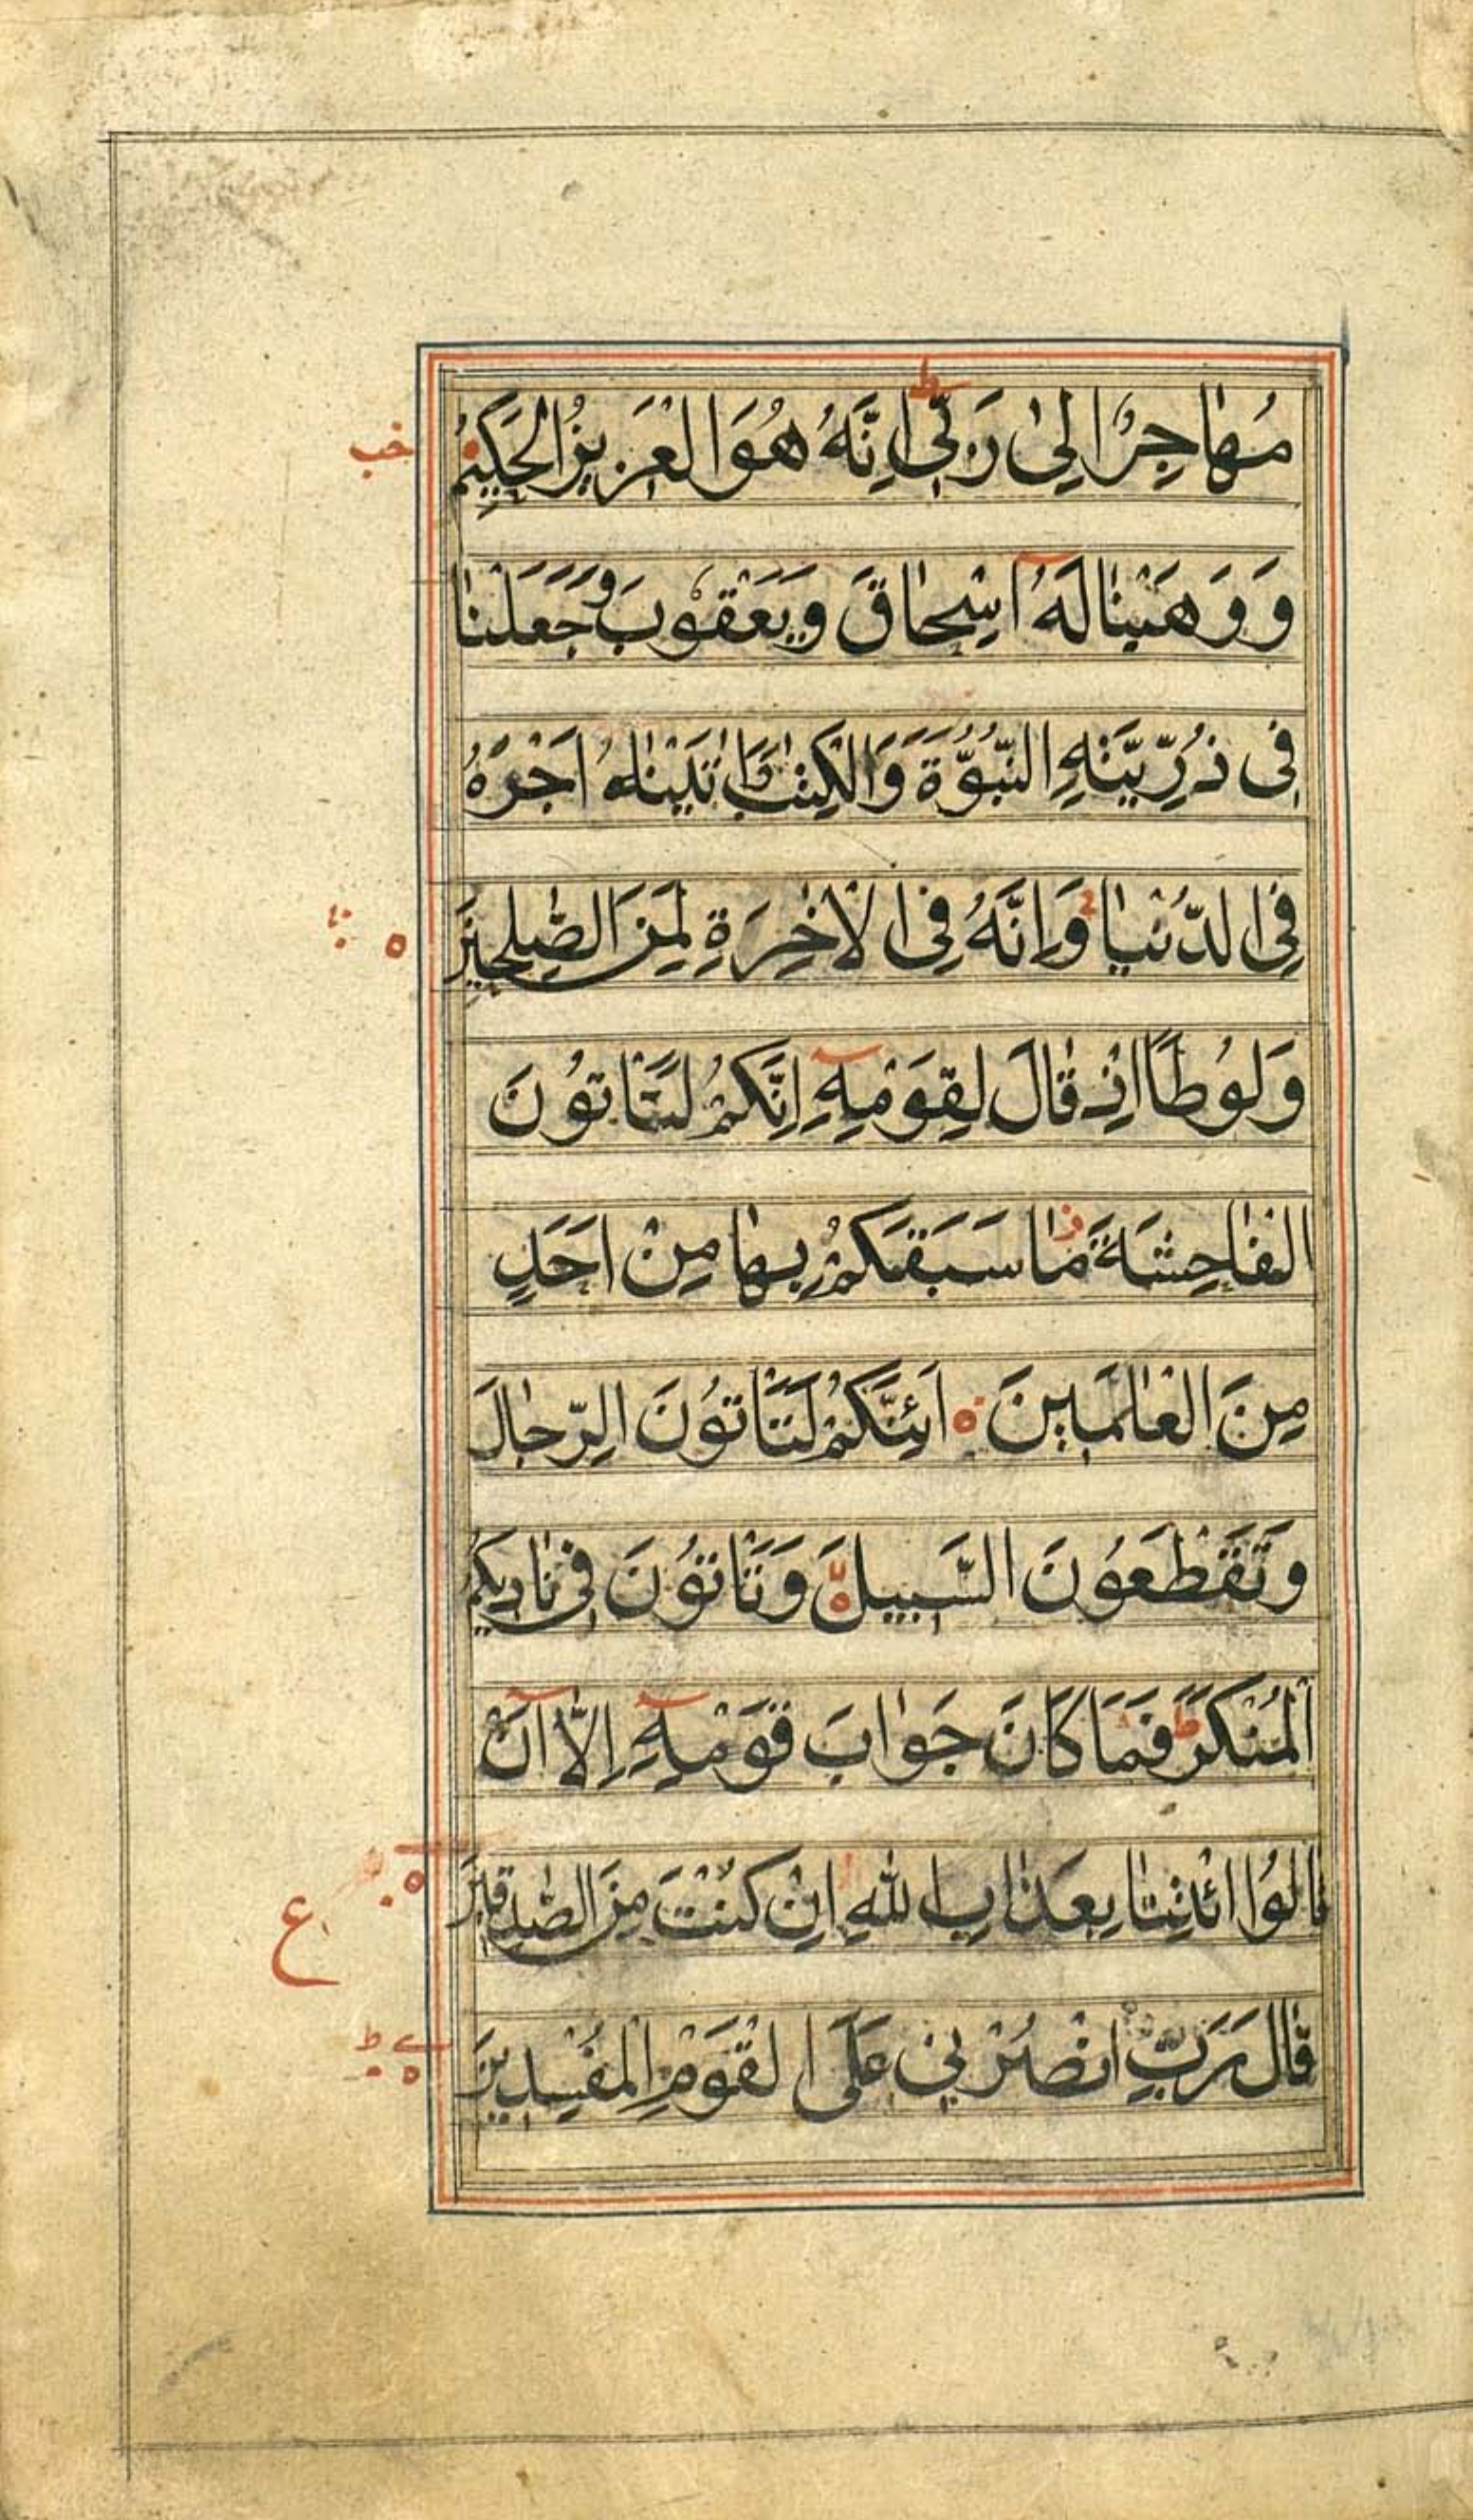 مُهاجِرٌ اِلىٰ رَبّىٖ ط اِنَّهُ هُوَ الْعَزيزُ الْحَكيٖمُ خب
وَ وَهَبْنٰا لَهُٓ اِسْحاقَ وَيَعْقوُبَ وَجَعَلْنٰا
فىٖ ذُرِّيَّتِهِ النُّبُوَّةَ وَالْكِتٰبَ وَاٰتَيْنٰاهُ اَجْرَهُ
فِى الدُّنْيٰا وَاِنَّهُ فِى الْاٰخِرَةِ لَمِنَ الصّٰلِحيٖنَ
وَلوُطًا اِذْ قٰالَ لِقَوْمِهٖٓ اِنَّكُمْ لَتَأتوُنَ
الْفٰاحِشَةَ ز مٰا سَبَقَكُمْ بِهٰا مِنْ اَحَدٍ
مِنَ الْعٰالَميٖنَ اَئِنَّكُمْ لَتَأتوُنَ الرِّجٰالَ
وَتَقْطَعوُنَ السَّبيٖلَ وَتَأتوُنَ فىٖ نٰاديٖكُمُ
الْمُنْكَرَ ط فَمٰا كٰانَ جَوٰابَ قَوْمِهٖٓ اِلّٰٓا اَنْ
قٰالوُا ائْتِنٰا بِعَذٰابِ اللّٰهِ اِنْ كُنْتَ مِنَ الصّٰدِقيٖنَ ع
قٰالَ رَبِّ انْصُرْنىٖ عَلَى الْقَوْمِ الْمُفْسِديٖنَ